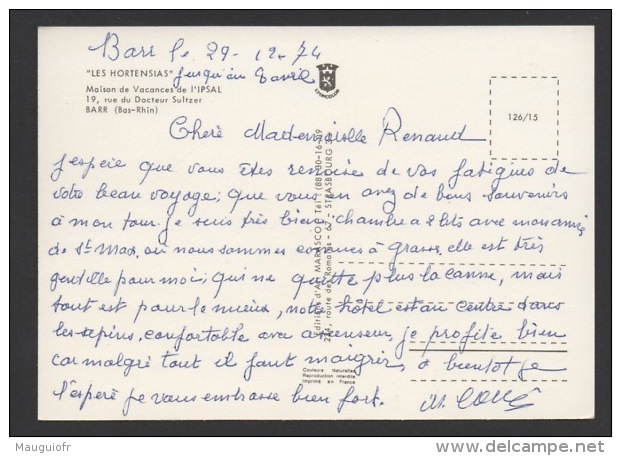 Barr le 29-12-74
jusqu'au 8 avril
"LES HORTENSIAS"
Maison de Vacances de l'IPSAL
19, rue du Docteur Sultzer
BARR (Bas-Rhin)
126/15
Cheré Mademoiselle Renaud
J'espère que vous êtes remise de vos fatigues de
votre beau voyage; que vous en avez de bons souvenirs
à mon tour je suis très bien, chambre a 2 lits avec mon amie
de St Max. où nous sommes connues à grasse. elle est très
gentille pour moi, qui ne quitte plus la canne, mais
tout est pour le mieux, notre hôtel est au centre dans
les sapins, confortable avec ascenseur, je profite bien
car malgré tout il faut maigrir, à bientôt je
l'espère je vous embrasse bien fort.
Edition d'Art MARASCO
STRASBOURG
Couleurs Naturelles
Reproduction interdite
Imprimé en France
Mauguiofr
www.delcampe.net